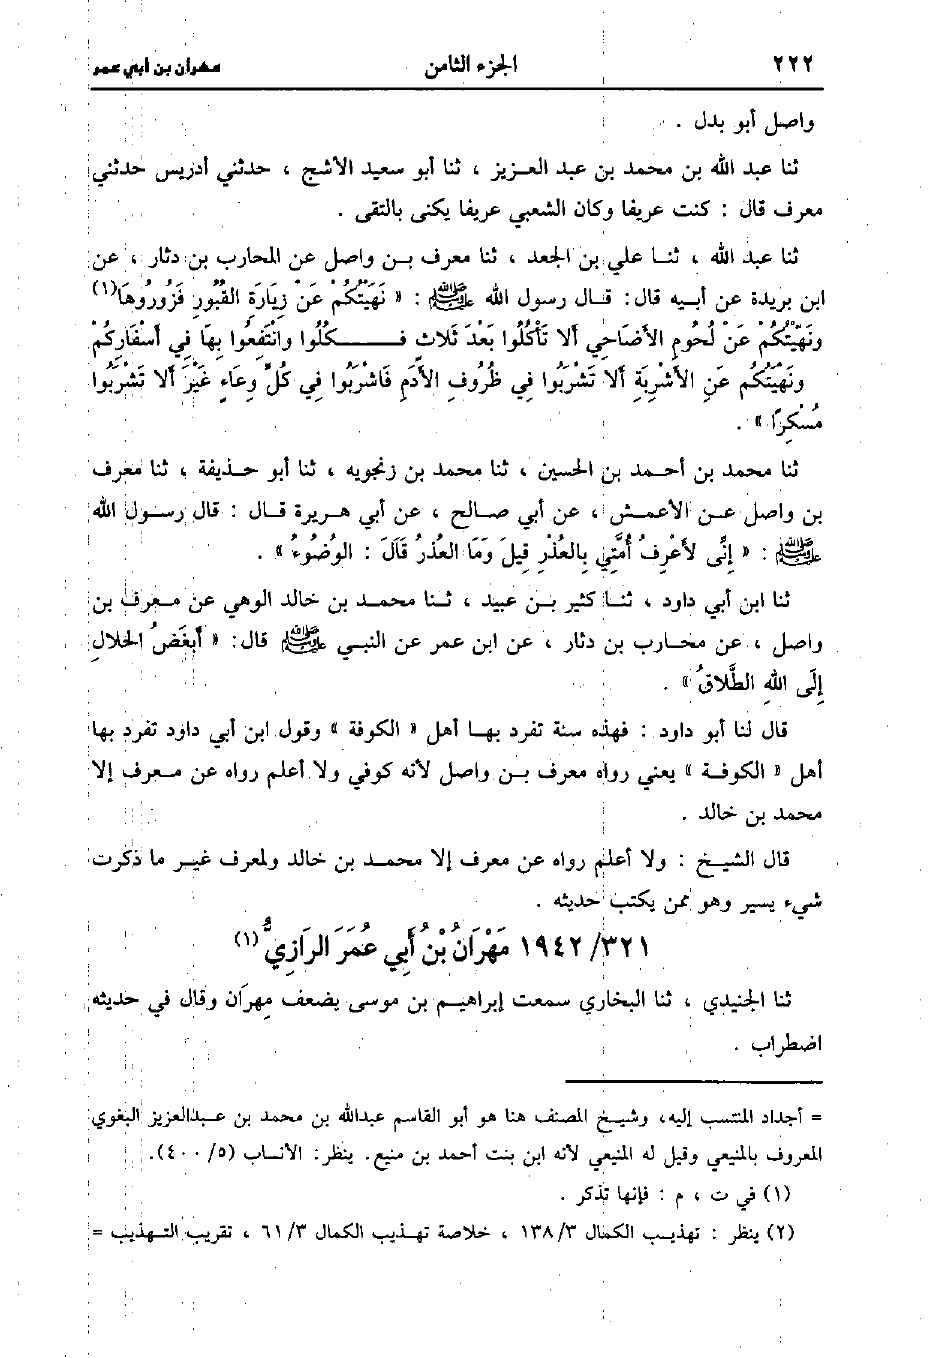 ٢٢٢ الجزء الثامن مهران بن أبي عمر
واصل أبو بدل .
ثنا عبد الله بن محمد بن عبد العزيز ، ثنا أبو سعيد الأشج ، حدثني أدريس حدثني
معرف قال : كنت عريفا وكان الشعبي عريفا يكنى بالتقى .
ثنا عبد الله ، ثنا علي بن الجعد ، ثنا معرف بن واصل عن المحارب بن دثار ، عن
ابن بريدة عن أبيه قال: قال رسول الله ﷺ : « نَهَيْتُكُمْ عَنْ زِيَارَةِ القُبُورِ فَزُورُوهَا(١)
وَنَهَيْتُكُمْ عَنْ لُحُومِ الأَضَاحِي أَلا تَأْكُلُوا بَعْدَ ثَلاثٍ فَكُلُوا وانْتَفِعُوا بِهَا فِي أَسْفَارِكُمْ
وَنَهَيْتُكُم عَنِ الأَشْرِبَةِ أَلا تَشْرَبُوا فِي ظُرُوفِ الأَدَمِ فَاشْرَبُوا فِي كُلِّ وِعَاءٍ غَيْرَ أَلا تَشْرَبُوا
مُسْكِرًا » .
ثنا محمد بن أحمد بن الحسين ، ثنا محمد بن زنجويه ، ثنا أبو حذيفة ، ثنا معرف
بن واصل عن الأعمش ، عن أبي صالح ، عن أبي هريرة قال : قال رسول الله
ﷺ : « إِنَّى لأَعْرِفُ أُمَّتِي بِالعُذْرِ قِيلَ وَمَا العُذْرُ قَالَ : الوُضُوءُ » .
ثنا ابن أبي داود ، ثنا كثير بن عبيد ، ثنا محمد بن خالد الوهي عن معرف بن
واصل ، عن محارب بن دثار ، عن ابن عمر عن النبي ﷺ قال: « أَبغَضُ الحَلالِ
إِلَى اللهِ الطَّلاقُ » .
قال لنا أبو داود : فهذه سنة تفرد بها أهل « الكوفة » وقول ابن أبي داود تفرد بها
أهل « الكوفة » يعني رواه معرف بن واصل لأنه كوفي ولا أعلم رواه عن معرف إلا
محمد بن خالد .
قال الشيخ : ولا أعلم رواه عن معرف إلا محمد بن خالد ولمعرف غير ما ذكرت
شيء يسير وهو ممن يكتب حديثه .
١٩٤٢ /٣٢١ مَهْرَانُ بْنُ أَبِي عُمَرَ الرَازِيُّ (١)
ثنا الجنيدي ، ثنا البخاري سمعت إبراهيم بن موسى يضعف مهران وقال في حديثه
اضطراب .
= أجداد المنتسب إليه، وشيخ المصنف هنا هو أبو القاسم عبدالله بن محمد بن عبدالعزيز البغوي
المعروف بالمنيعي وقيل له المنيعي لأنه ابن بنت أحمد بن منيع. ينظر: الأنساب (٥/ ٤٠٠).
(١) في ت ، م : فإنها تذكر .
(٢) ينظر : تهذيب الكمال ١٣٨/٣ ، خلاصة تهذيب الكمال ٦١/٣ ، تقريب التهذيب =